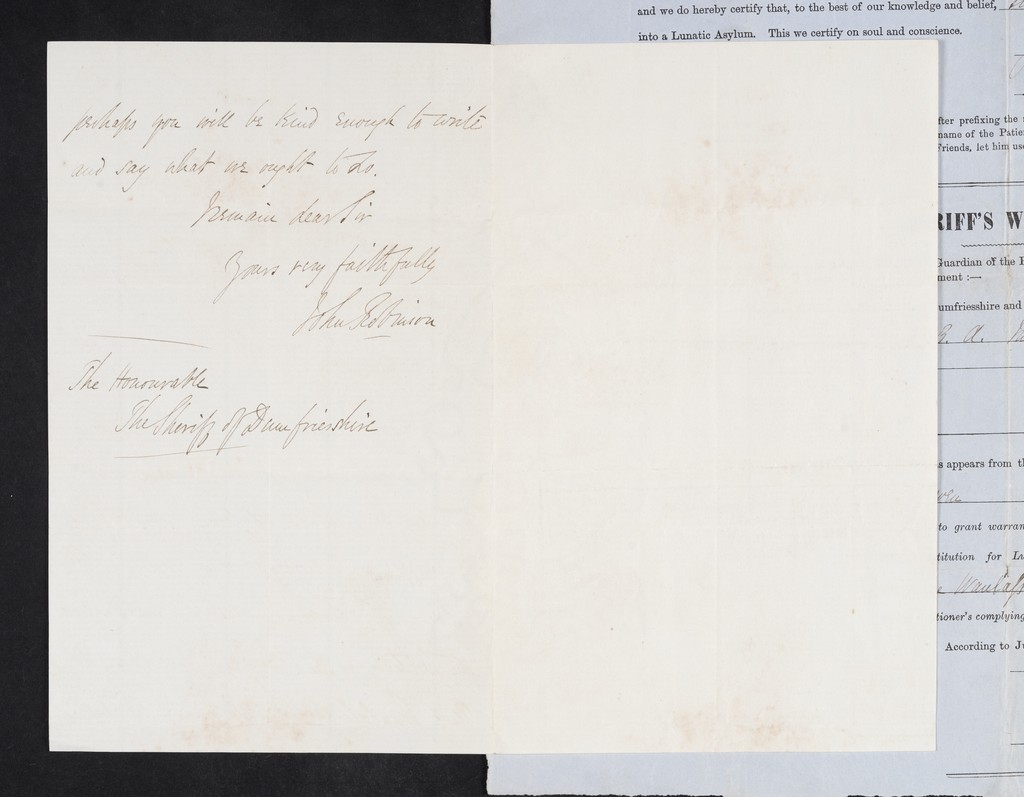 perhaps you will be kind enough to write
and say what we ought to do.
I remain dear Sir
Yours very faithfully
John Robinson
The Honourable
The Sheriff of Dumfriesshire
and we do hereby certify that, to the best of our knowledge and belief,
into a Lunatic Asylum. This we certify on soul and conscience.
fter prefixing the
name of the Patie
Friends, let him us
RIFF'S W
Guardian of the
ment :—
umfriesshire and
s appears from th
to grant warran
titution for Lu
tioner's complying
According to Ju